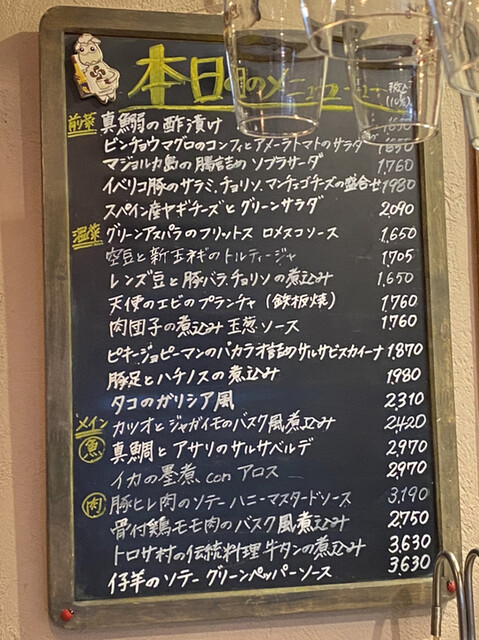 本日のメニュー 税込(10%)
前菜 真鯛の酢漬け 1,650
ビンチョウマグロのコンフィとアメーラトマトのサラダ 1,650
マジョルカ島の腸詰め ソブラサーダ 1,760
イベリコ豚のサラミ、チョリソ、マンチェゴチーズの盛合せ 1,980
スペイン産ヤギチーズと グリーンサラダ 2,090
温菜 グリーンアスパラのフリットス ロメスコソース 1,650
空豆と新玉ネギのトルティージャ 1,705
レンズ豆と豚バラ、チョリソの煮込み 1,650
天使のエビのプランチャ (鉄板焼) 1,760
肉団子の煮込み 玉葱ソース 1,760
ピキージョピーマンのバカラオ詰めサルサビスカイーナ 1,870
豚足とハチノスの煮込み 1,980
タコのガリシア風 2,310
メイン カツオとジャガイモのバスク風煮込み 2,420
魚 真鯛とアサリのサルサベルデ 2,970
イカの墨煮 con アロス 2,970
肉 豚ヒレ肉のソテーハニーマスタードソース 3,190
骨付鶏モモ肉のバスク風煮込み 2,750
トロサ村の伝統料理 牛タンの煮込み 3,630
仔羊のソテー グリーンペッパーソース 3,630